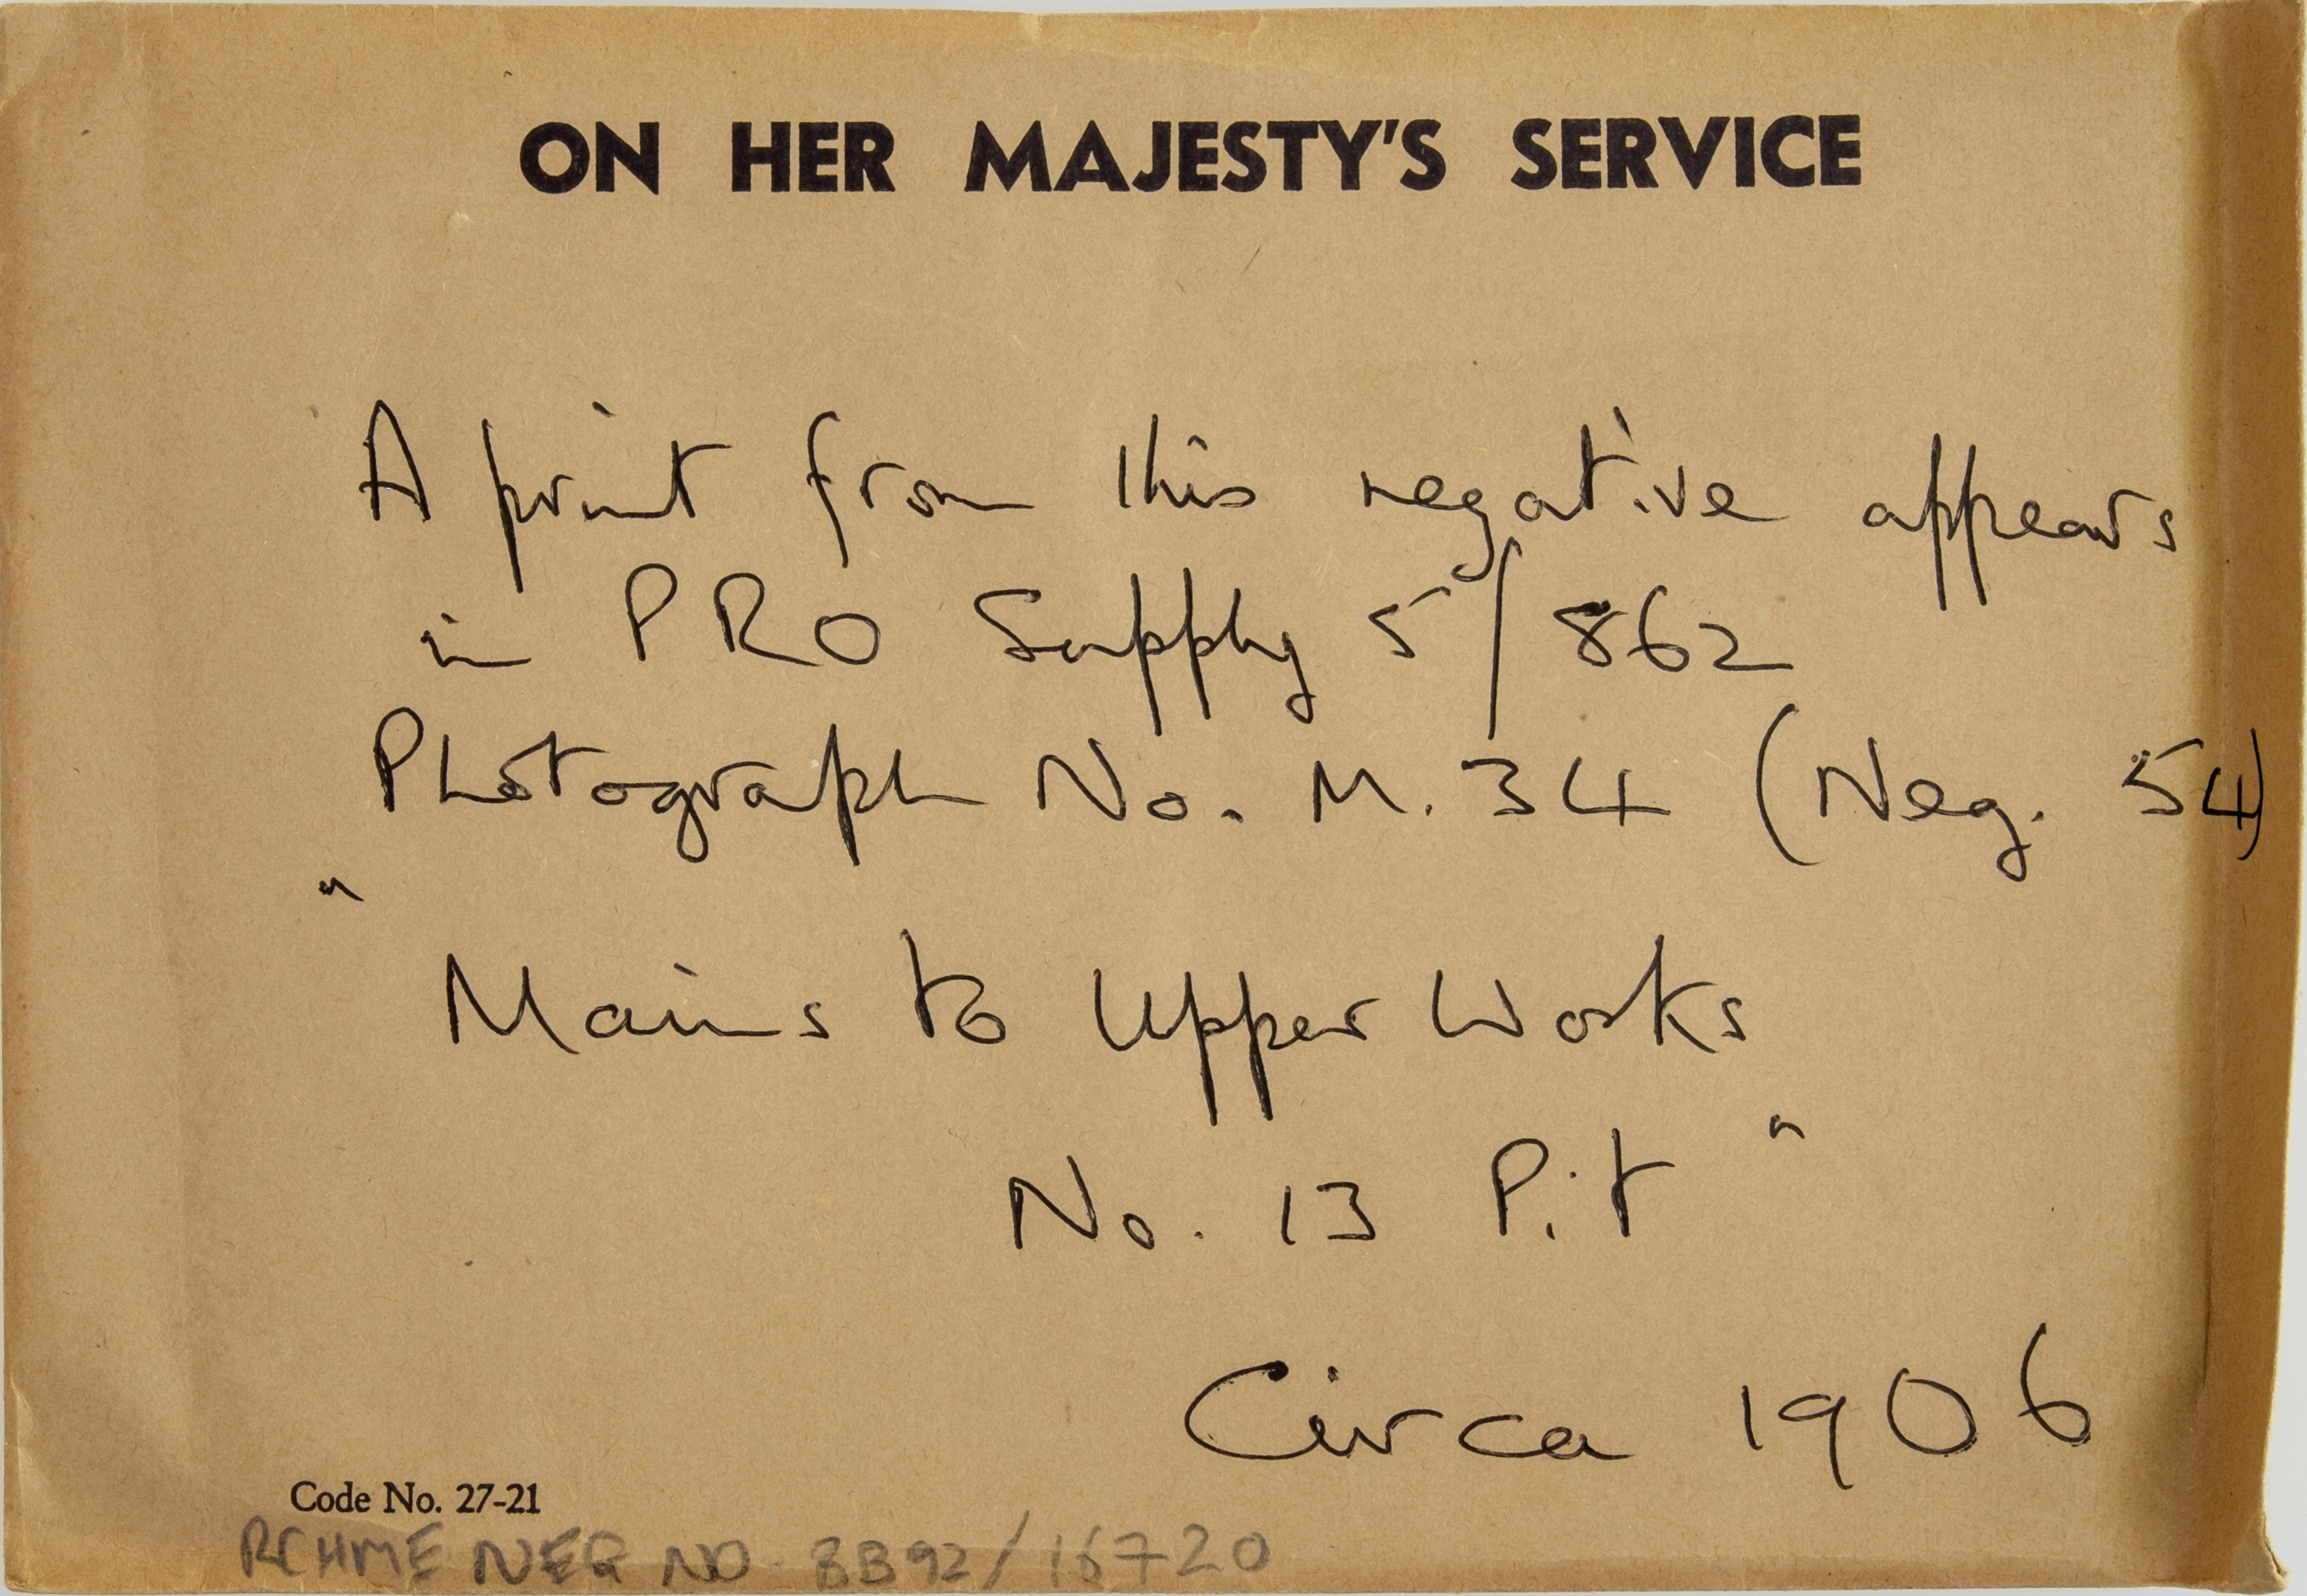 ON HER MAJESTY'S SERVICE
A print from this negative appears
in PRO Supply 5/862
Photograph No. M. 34 (Neg. 54)
"
Mains to Upper Works
No. 13 Pit "
Circa 1906
Code No. 27-21
RCHME NEG NO. BB92/16720